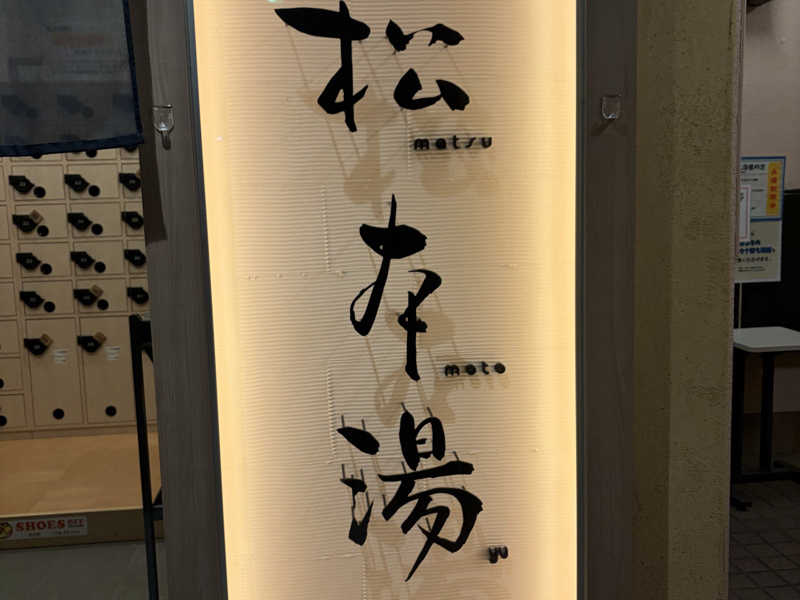 松
matsu
本
moto
湯
yu
SHOES